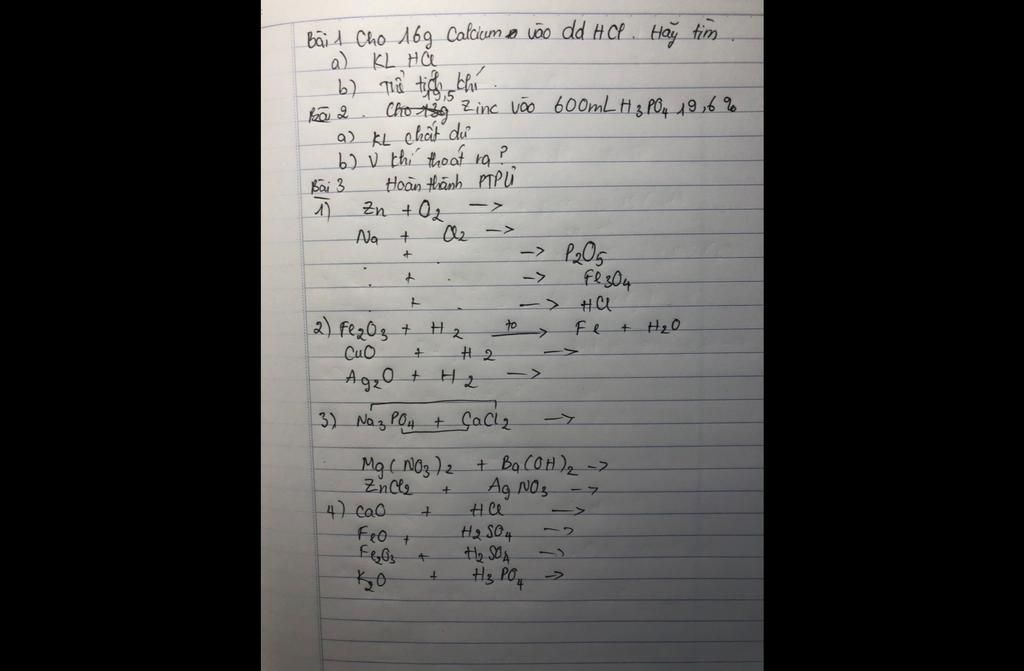 Bài 1 Cho 16g Calcium vào dd HCl. Hãy tìm.
a) KL HCl
b) Thể tích khí.
Bài 2. Cho 19,5 g Zinc vào 600mL H3PO4 19,6%
a) KL chất dư
b) V khí thoát ra?
Bài 3 Hoàn thành PTPƯ
1) Zn + O2 ->
Na + Cl2 ->
+ -> P2O5
. + . -> Fe3O4
+ . -> HCl
2) Fe2O3 + H2 to -> Fe + H2O
CuO + H2 ->
Ag2O + H2 ->
3) Na3PO4 + CaCl2 ->
Mg(NO3)2 + Ba(OH)2 ->
ZnCl2 + AgNO3 ->
4) CaO + HCl ->
FeO + H2SO4 ->
Fe2O3 + H2SO4 ->
K2O + H3PO4 ->